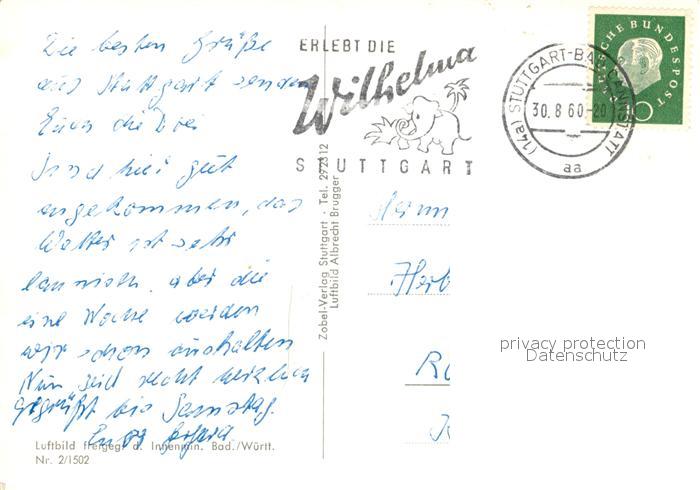 Die besten Grüße
aus Stuttgart senden
Euch die Drei
Sind hier gut
angekommen, das
Wetter ist sehr
launisch, aber die
eine Woche werden
wir schon aushalten
Nun seid recht herzlich
gegrüßt bis Samstag.
Luftbild freigeg. d. Innenmin. Bad./Württ.
Nr. 2/1502
Zobel-Verlag Stuttgart · Tel. 297312
Luftbild Albrecht Brugger
ERLEBT DIE
Wilhelma
STUTTGART
(14a) STUTTGART-BAD CANNSTATT
30.8.60.-20
aa
DEUTSCHE BUNDESPOST
10
Herrn
Herb
privacy protection
Datenschutz